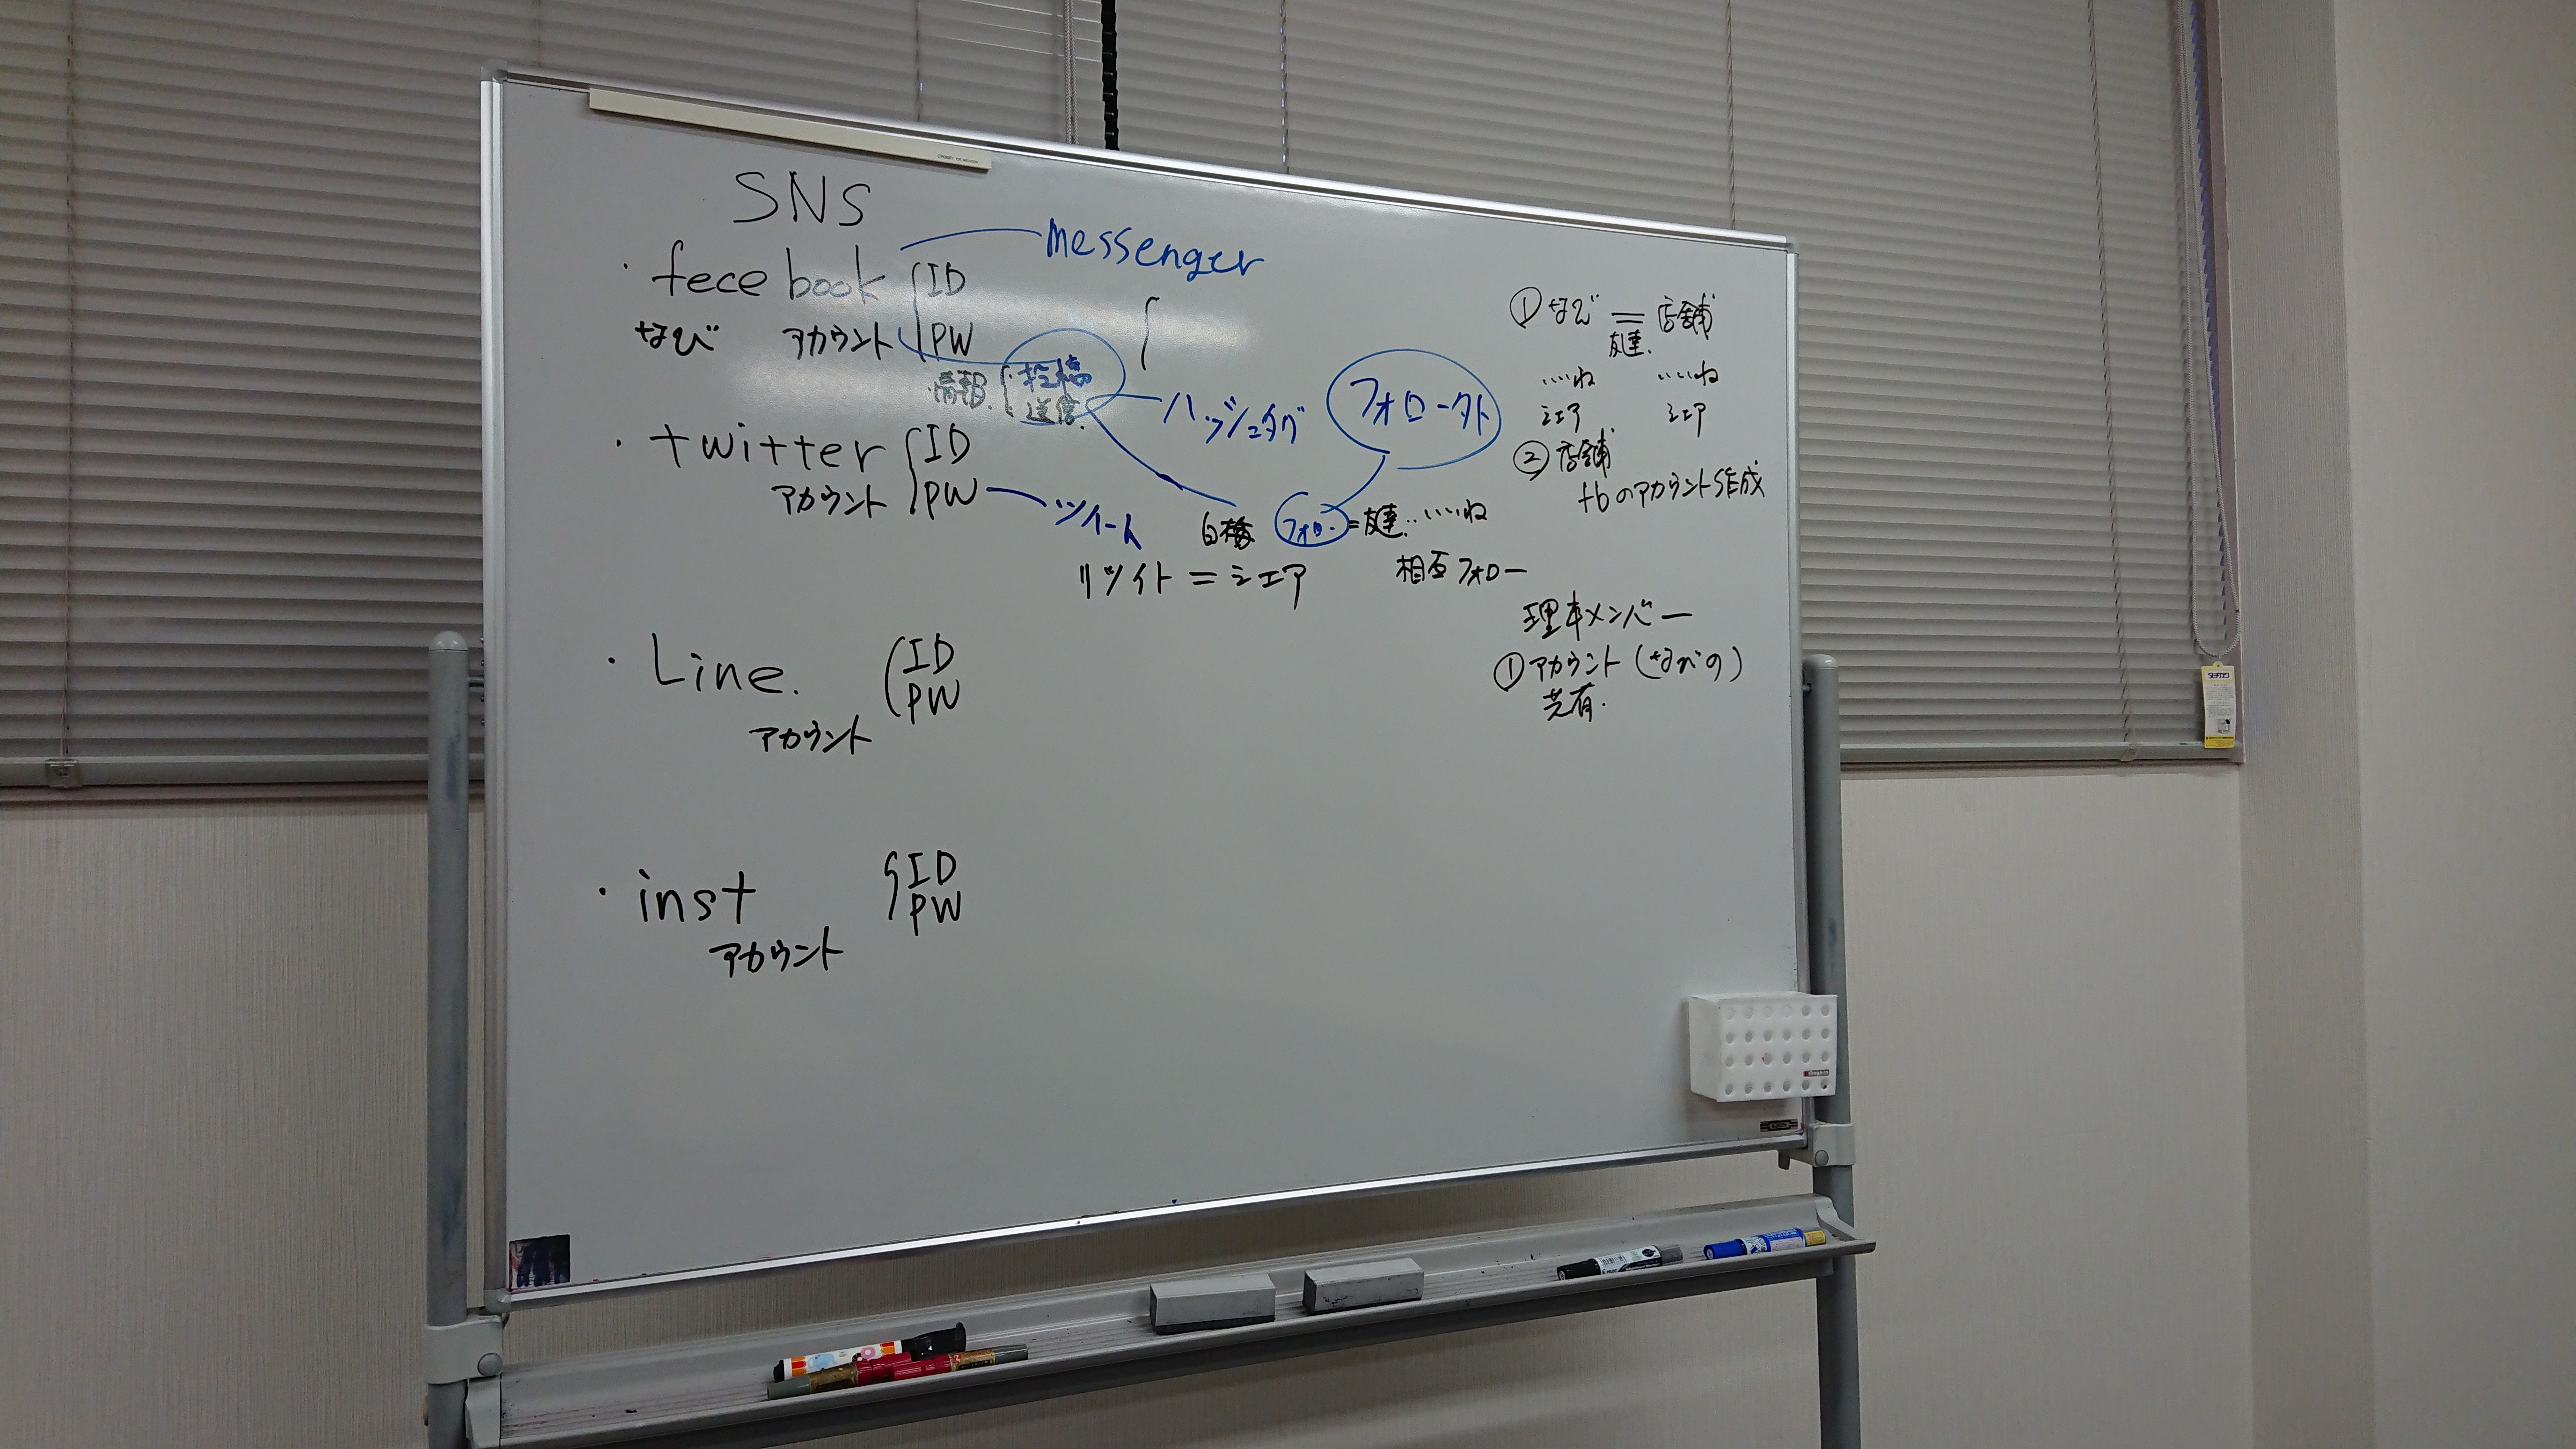 SNS
messenger
・fecebook ID
なび アカウント PW
情報. ・投稿
送信.
ハッシュタグ
フォロー外
・twitter ID
アカウント PW
ツイート
白梅 フォロー=友達..いいね
リツイト=シェア 相互フォロー
・Line. ID
PW
アカウント
・inst ID
PW
アカウント
①なび = 店舗
友達.
いいね いいね
シェア シェア
②店舗
fbのアカウント作成
理事メンバー
①アカウント(なびの)
共有.